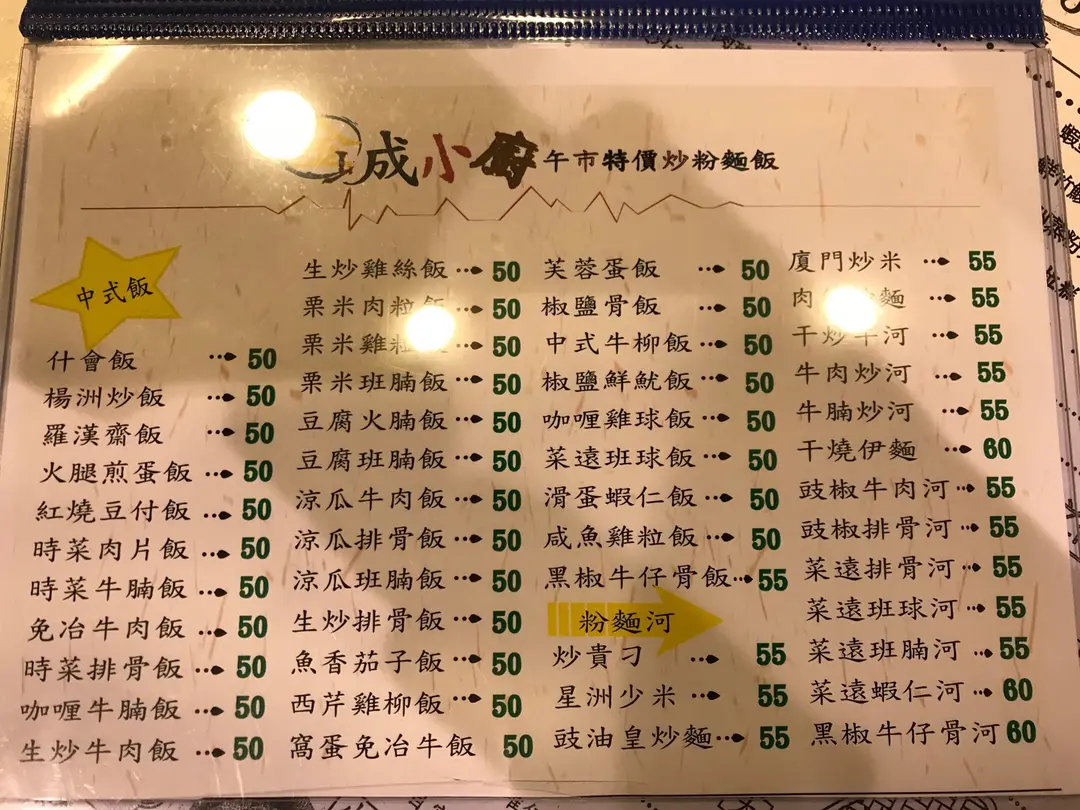 成小廚 午市特價炒粉麵飯
中式飯
什會飯 50
楊洲炒飯 50
羅漢齋飯 50
火腿煎蛋飯 50
紅燒豆付飯 50
時菜肉片飯 50
時菜牛腩飯 50
免冶牛肉飯 50
時菜排骨飯 50
咖喱牛腩飯 50
生炒牛肉飯 50
生炒雞絲飯 50
栗米肉粒飯 50
栗米雞粒 50
栗米班腩飯 50
豆腐火腩飯 50
豆腐班腩飯 50
涼瓜牛肉飯 50
涼瓜排骨飯 50
涼瓜班腩飯 50
生炒排骨飯 50
魚香茄子飯 50
西芹雞柳飯 50
窩蛋免冶牛飯 50
芙蓉蛋飯 50
椒鹽骨飯 50
中式牛柳飯 50
椒鹽鮮魷飯 50
咖喱雞球飯 50
菜遠班球飯 50
滑蛋蝦仁飯 50
咸魚雞粒飯 50
黑椒牛仔骨飯 55
粉麵河
炒貴刁 55
星洲少米 55
豉油皇炒麵 55
廈門炒米 55
肉 麵 55
干炒牛河 55
牛肉炒河 55
牛腩炒河 55
干燒伊麵 60
豉椒牛肉河 55
豉椒排骨河 55
菜遠排骨河 55
菜遠班球河 55
菜遠班腩河 55
菜遠蝦仁河 60
黑椒牛仔骨河 60